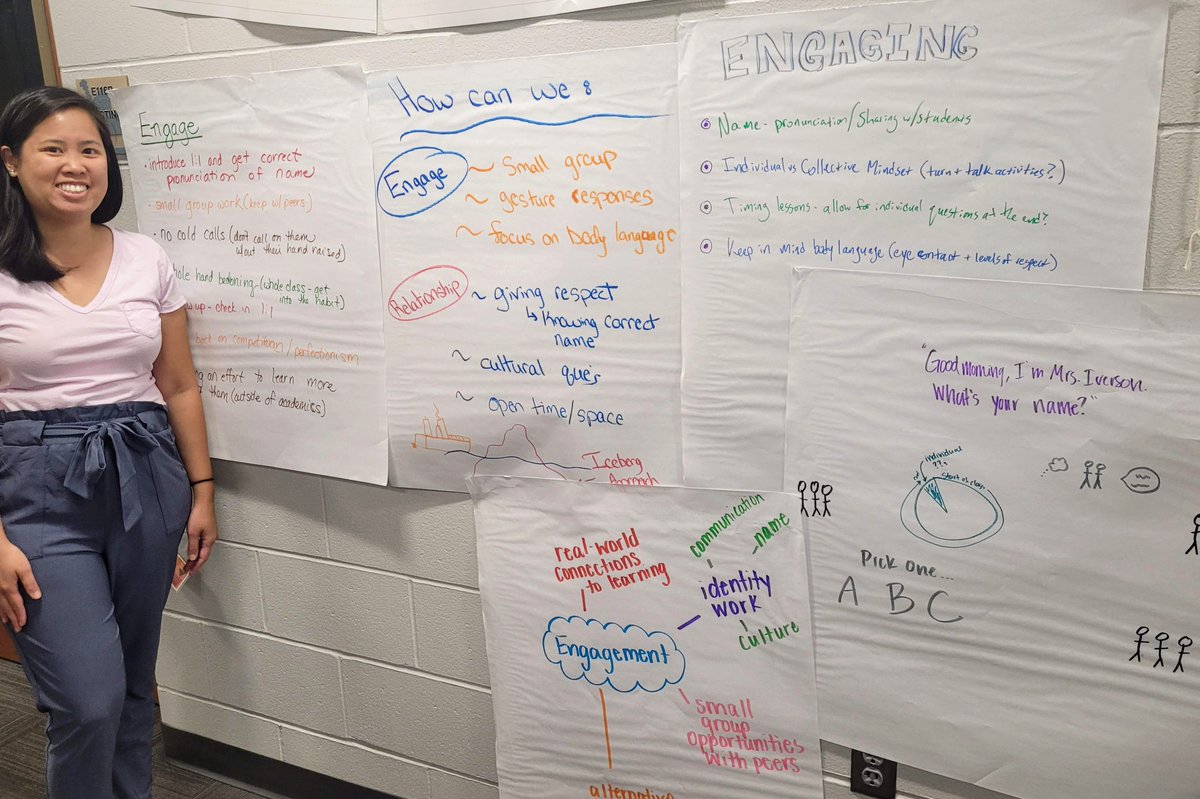 Engage
• introduce 1:1 and get correct
pronunciation of name
• small group work (keep w/ peers)
• no cold calls (don't call on them
w/out their hand raised)
hole hand beckoning - (whole class - get
into the habit)
up - check in 1:1
back on competition / perfectionism
an effort to learn more
them (outside of academics)
How can we :
Engage
~ Small group
~ gesture responses
~ focus on body language
Relationship
~ giving respect
↳ Knowing correct
name
~ cultural que's
~ open time/space
Iceberg
Approach
ENGAGING
Name - pronunciation/Sharing w/students
Individual vs Collective Mindset (turn + talk activities?)
Timing lessons - allow for individual questions at the end?
Keep in mind body language (eye contact + levels of respect)
"Good morning, I'm Mrs. Iverson.
What's your name?"
individual
???
start of class
Pick one...
A B C
real-world
connections
to learning
communication
name
identity
work
culture
Engagement
small
group
opportunities
with peers
alternative